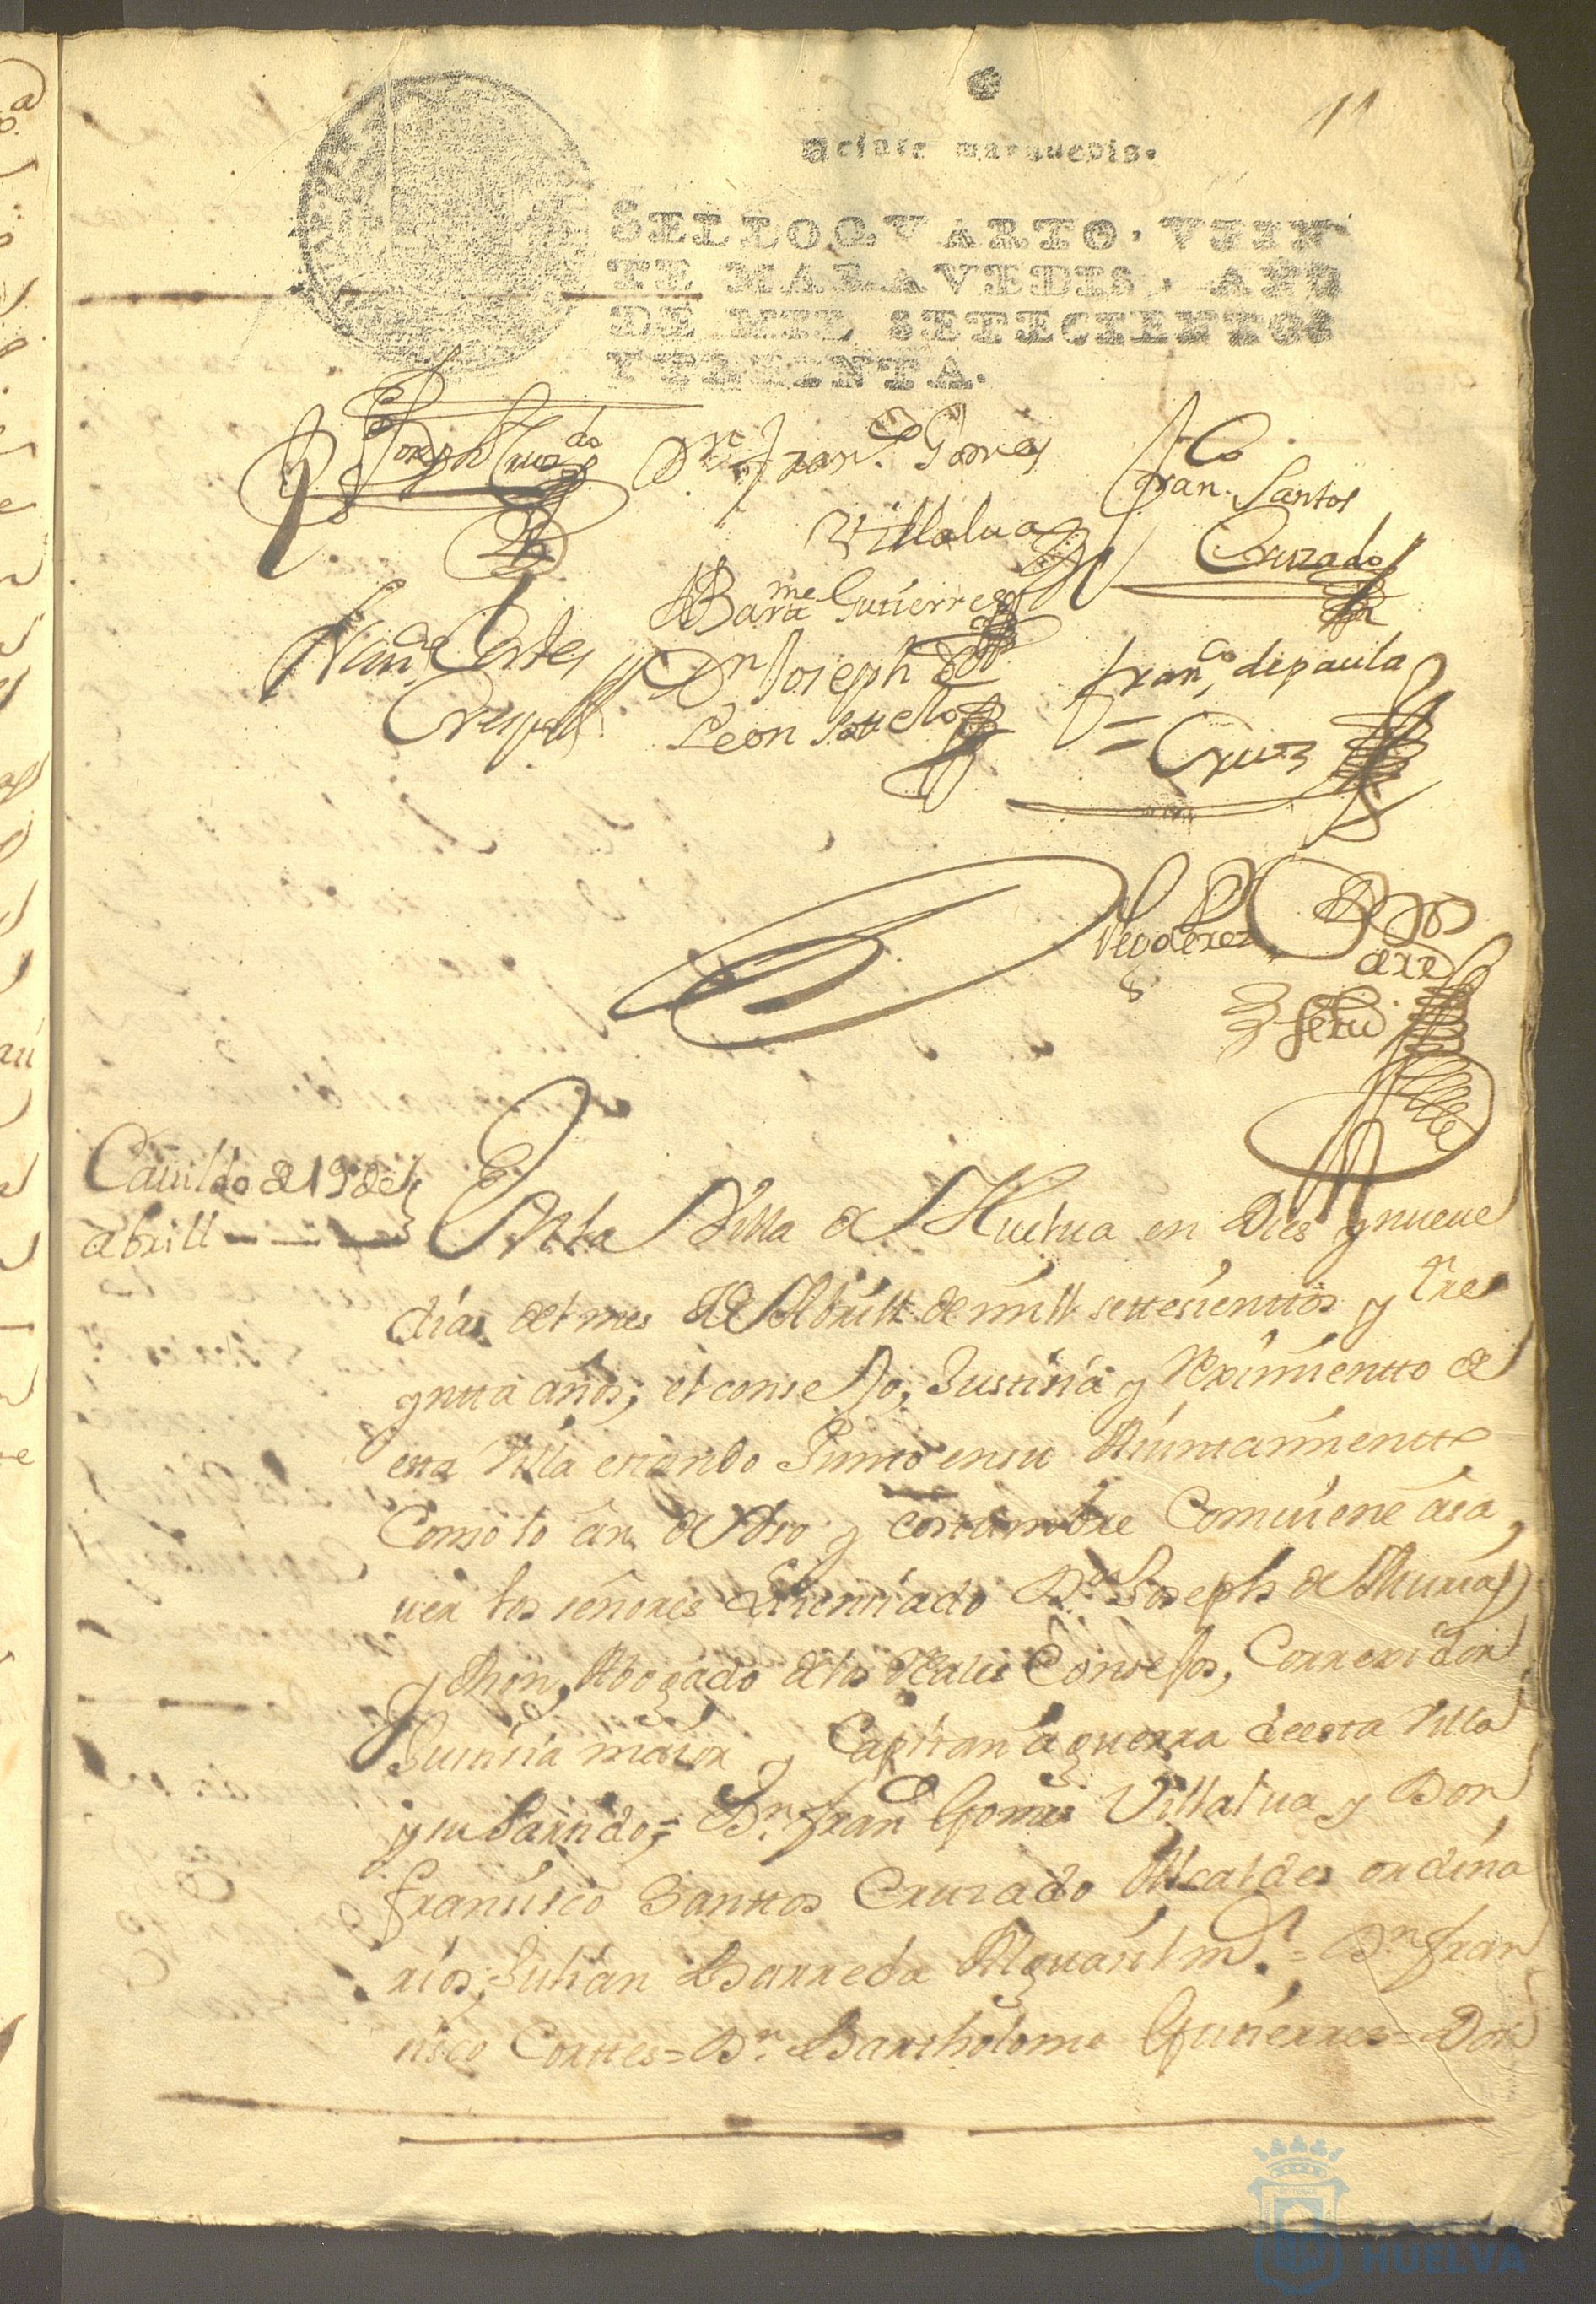 11
Veinte maravedis.
SELLO QVARTO, VEIN
TE MARAVEDIS, AÑO
DE MIL SETECIENTOS
Y TREINTA.
Joseph Cruzdo Dn Franco Gomes
Villalua
Franco Santos
Cruzado
Barme Gutierres
Cortes
Crespo
Dn Joseph de
Leon Sottelo
franco de paula
= Cruz
Diego Perez
Cauildo de 19 de
abrill
En la Villa de Huelua en Dies y nueue
dias del mes de Abrill de mill settesienttos y tre
ynta años; el consejo, Justisia y Reximientto de
esta Villa estando Juntto en su Aiuntamientto
Como lo an de Vso y costumbre Comuiene asa
uer los señores Lisensiado Dn Joseph de
Abogado de los Reales Consejos, Correxidor
Justisia maior y Capitan a guerra de esta Villa
y su Partido; = Dn Franco Gomes Villalua y Don
Fransisco Santtos Cruzado Alcaldes ordina
rios; Julian Barreda Alguasil mor = Dn Fran
sisco Corttes = Dn Bartholome Gutierres = Don
HUELVA